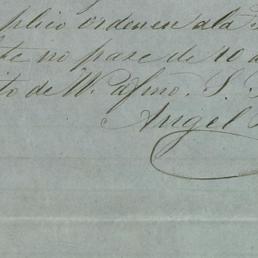 plico ordenen a la
te no pase de 10 a
to de V. afmo. S.
Angel